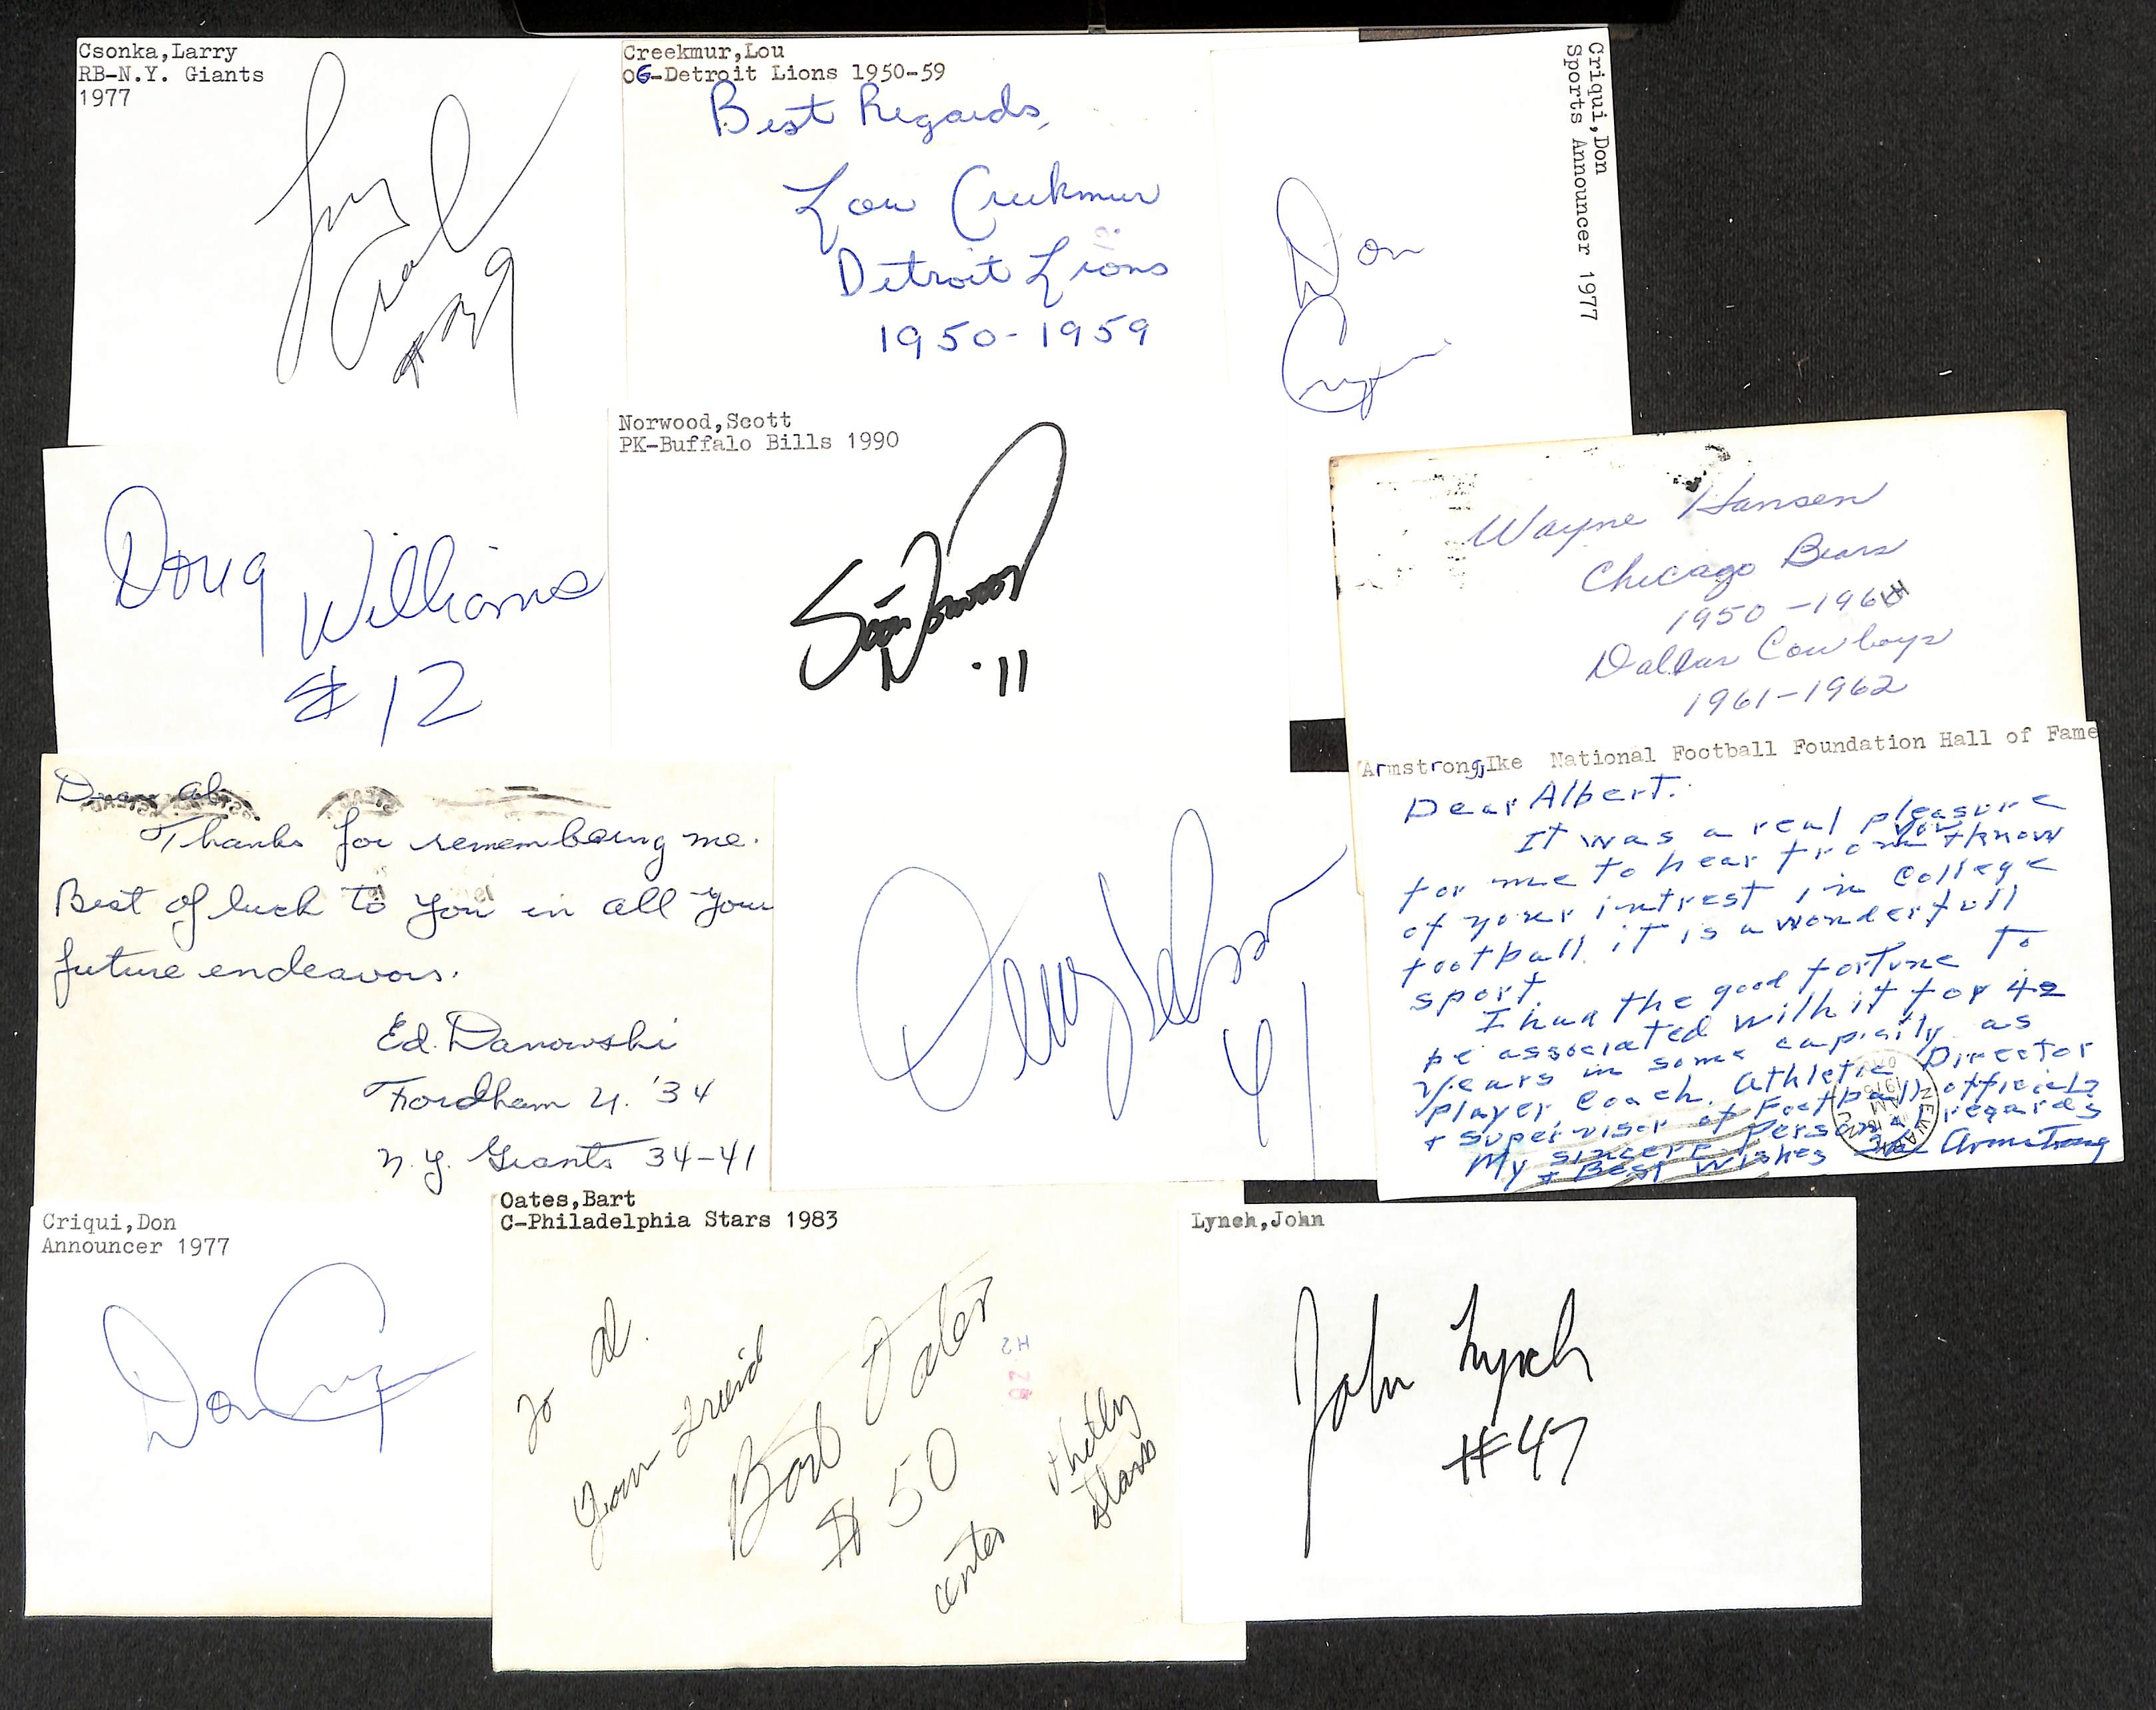 Csonka,Larry
RB-N.Y. Giants
1977
Larry
#39
Creekmur,Lou
OG-Detroit Lions 1950-59
Best Regards,
Lou Creekmur
Detroit Lions
1950-1959
Criqui,Don
Sports Announcer 1977
Don
Criqui
Doug
Williams
#12
Norwood,Scott
PK-Buffalo Bills 1990
Scott Norwood
11
Wayne Hansen
Chicago Bears
1950-1960
Dallas Cowboys
1961-1962
Dear Al
Thanks for remembering me.
Best of luck to you in all your
future endeavors.
Ed. Danowski
Fordham U. '34
N.Y. Giants 34-41
41
Armstrong,Ike National Football Foundation Hall of Fame
Dear Albert.
It was a real pleasure
for me to hear from you + know
of your intrest in College
football. it is a wonderfull
sport.
I had the good fortune to
be associated with it for 42
years in some capisity as
player, Coach, Athletic Director
+ supervisor of Football officials
My sincere personal regards
+ Best Wishes Ike Armstrong
NEWARK
Criqui,Don
Announcer 1977
Don Criqui
Oates,Bart
C-Philadelphia Stars 1983
To Al.
Your Friend
Bart Oates
#50
center
Philly
Stars
Lynch,John
John Lynch
#47